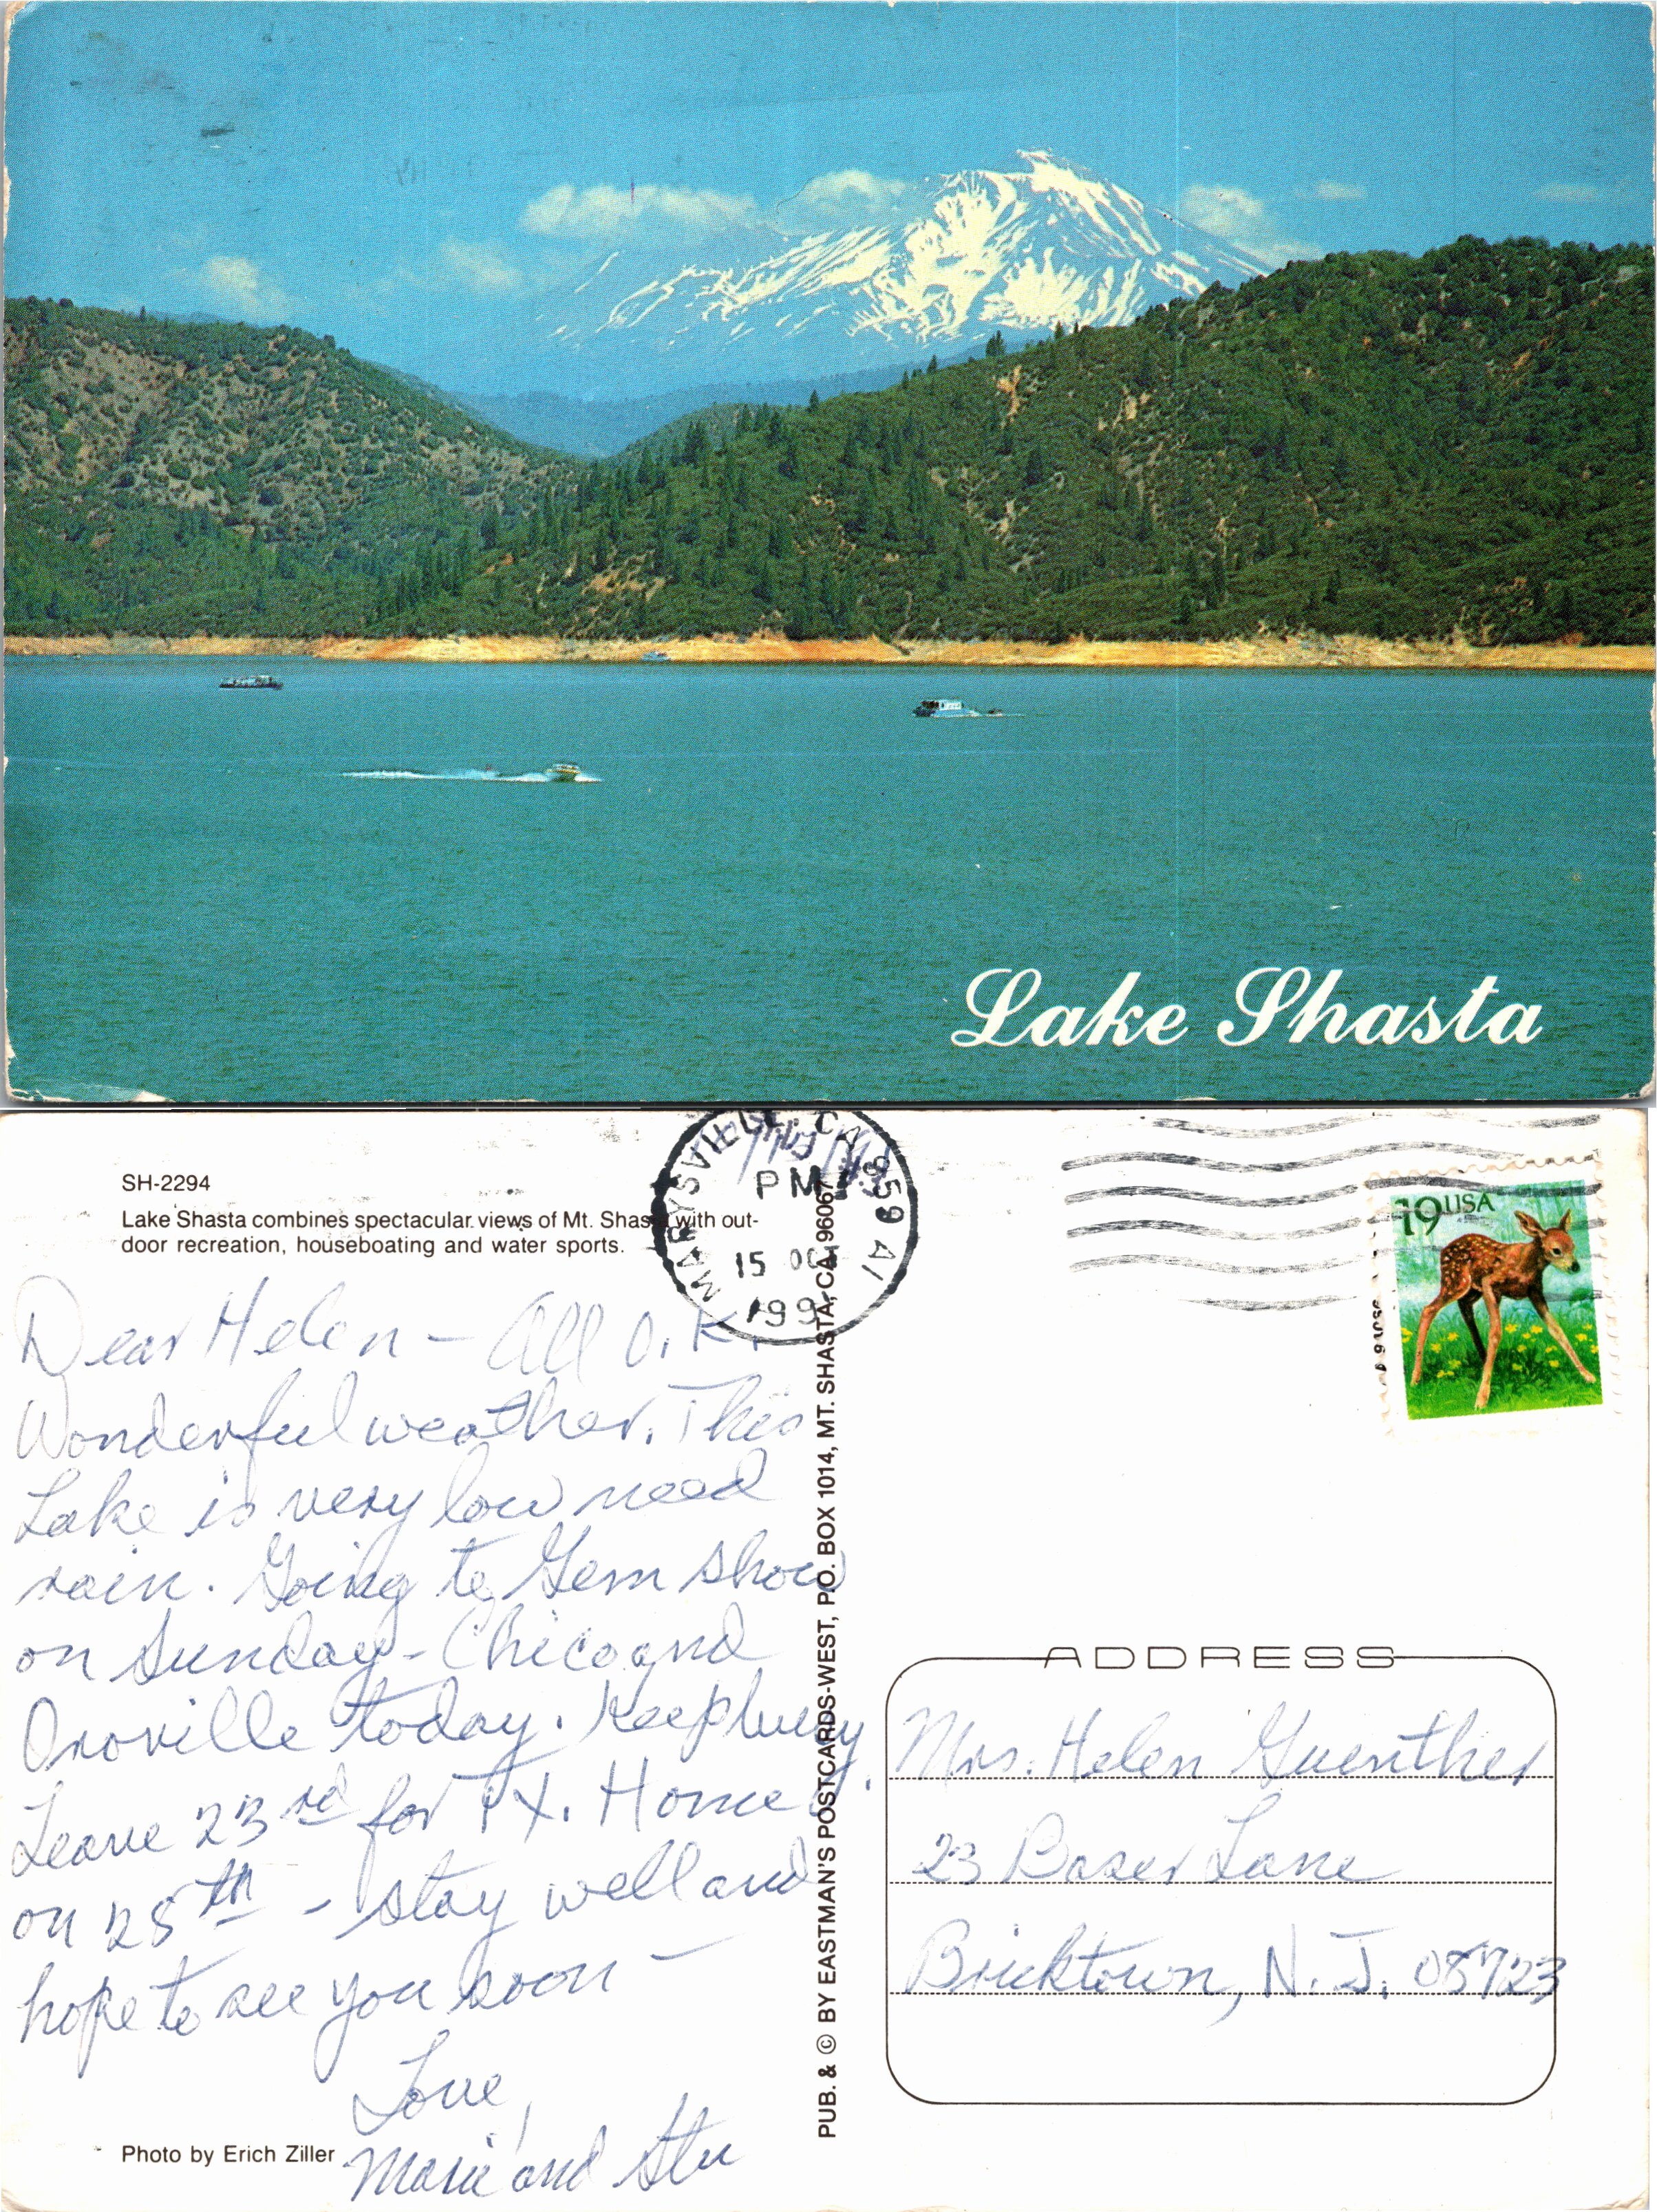 Lake Shasta
SH-2294
Lake Shasta combines spectacular views of Mt. Shasta with out-
door recreation, houseboating and water sports.
MARYSVILLE, CA 959
PM
15 OCT
199
19 USA
Dear Helen - All O.K.
Wonderful weather. This
Lake is very low need
rain. Going to Gem Show
on Sunday - Chico and
Oroville today. Keep busy.
Leave 23rd for TX. Home
on 28th - stay well and
hope to see you soon -
Love,
Marie and Stu
Photo by Erich Ziller
PUB. & © BY EASTMAN'S POSTCARDS-WEST, P.O. BOX 1014, MT. SHASTA, CA 96067
ADDRESS
Mrs. Helen Guenther
23 Lane
Bricktown, N.J. 08723